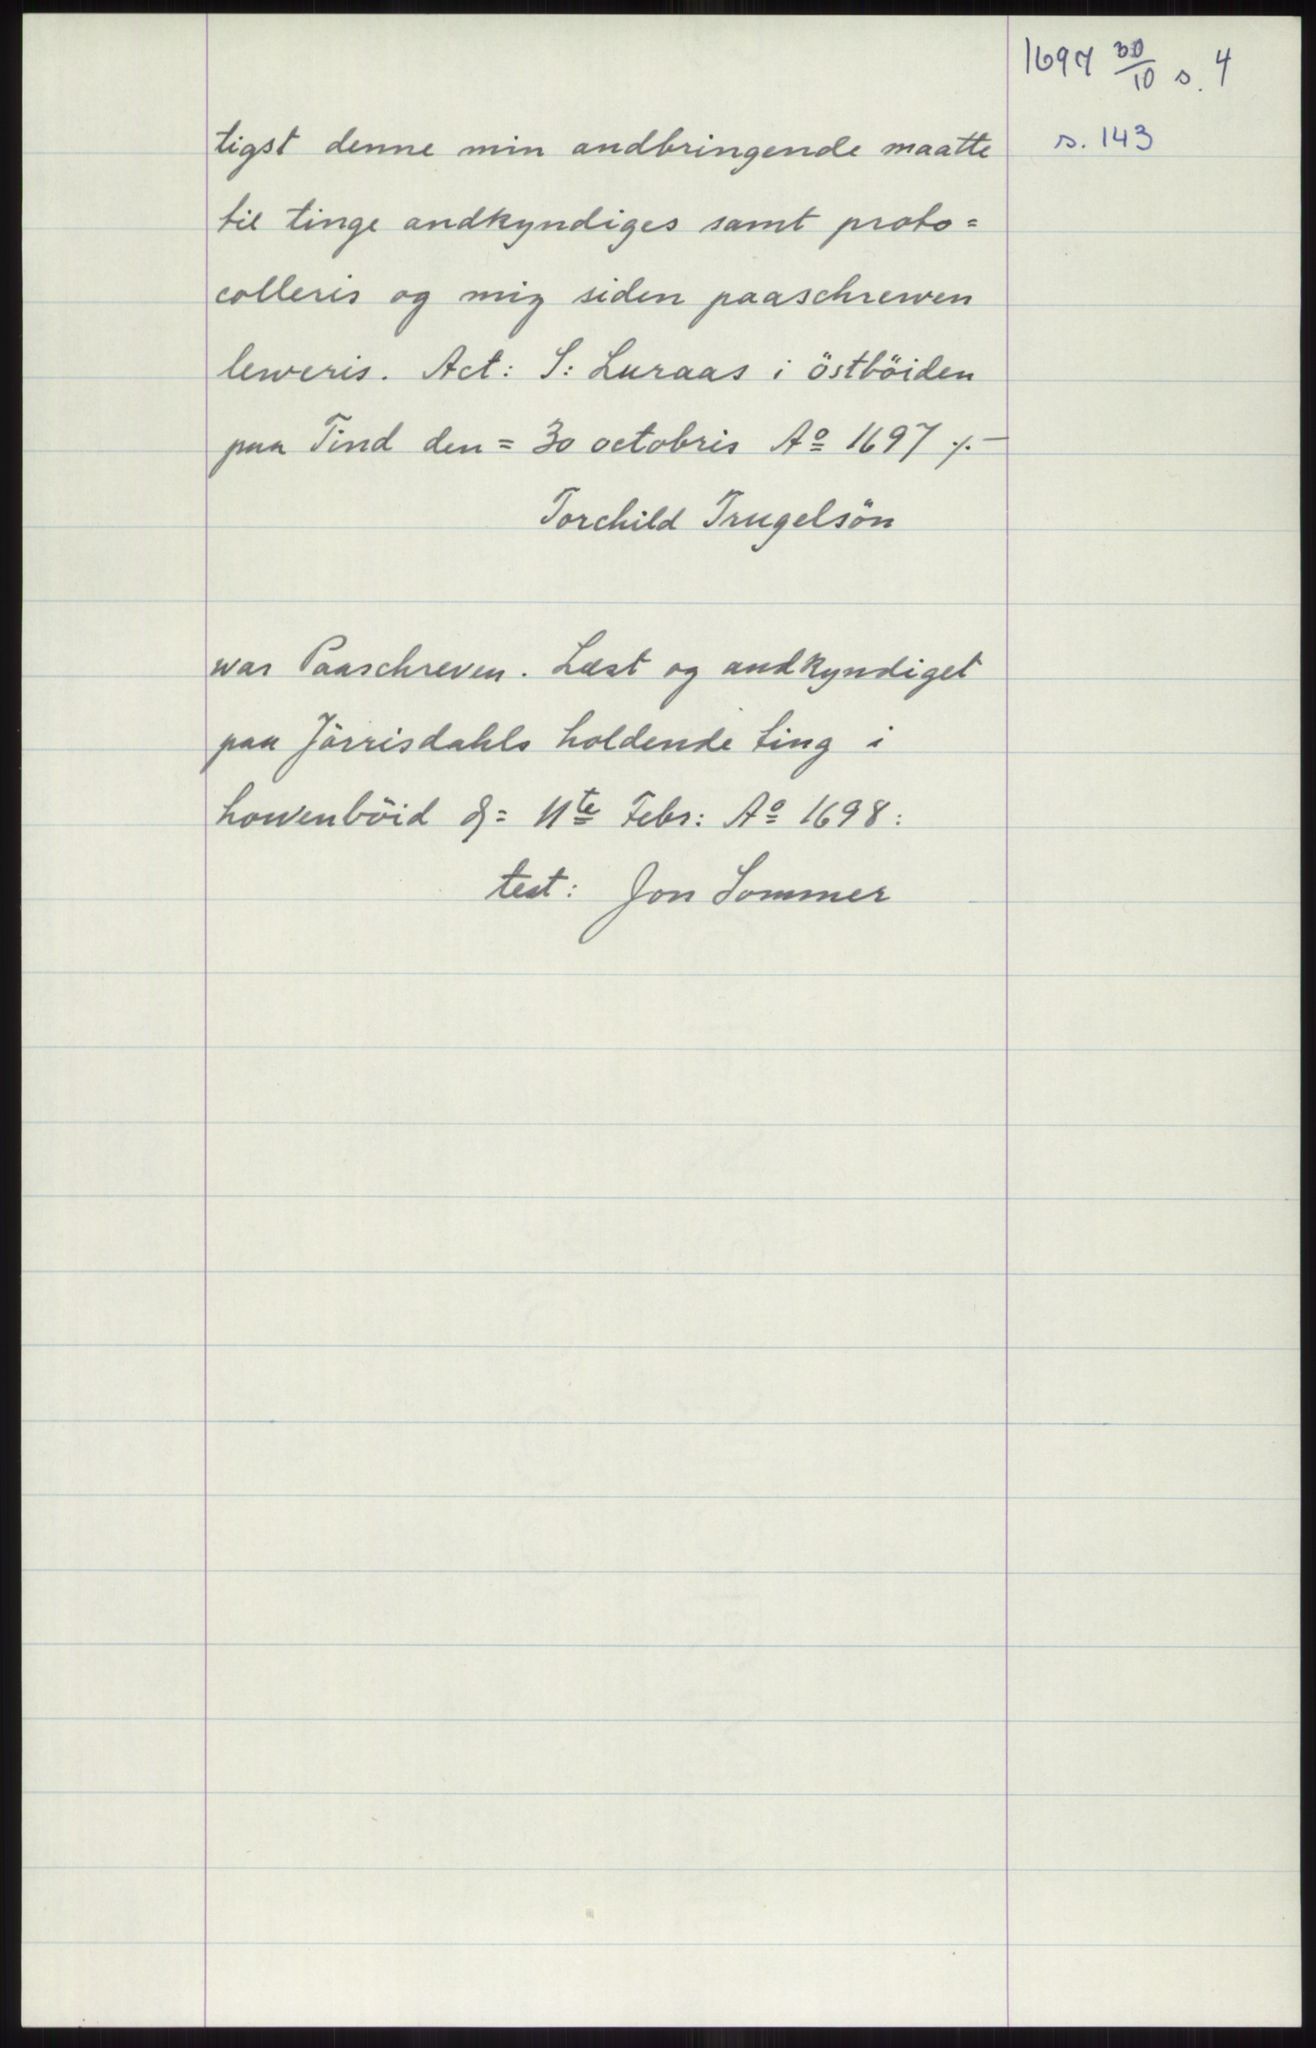 1697 30/10 s. 4
s. 143
tigst denne min andbringende maatte
til tinge andkyndiges samt proto=
colleris og mig siden paaschrewen
leweris. Act: S: Luraas i östböiden
paa Tind den = 30 octobris Aº 1697 ./.
Torchild Trugelsön
war Paaschreven. Læst og andkyndiget
paa Jörrisdahls holdende ting i
howenböid d= 11te Febr: Aº 1698:
test: Jon Sommer